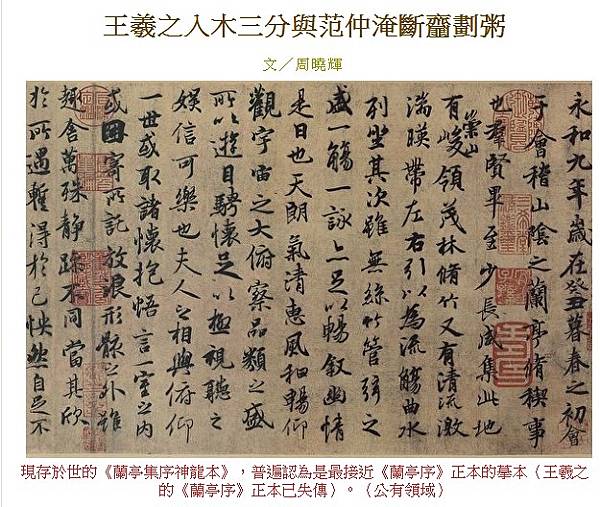 王羲之入木三分與范仲淹斷齏劃粥
文／周曉輝
永和九年歲在癸丑暮春之初會
于會稽山陰之蘭亭脩稧事
也羣賢畢至少長咸集此地
有崇山峻領茂林脩竹又有清流激
湍暎帶左右引以為流觴曲水
列坐其次雖無絲竹管弦之
盛一觴一詠亦足以暢敘幽情
是日也天朗氣清惠風和暢仰
觀宇宙之大俯察品類之盛
所以遊目騁懷足以極視聽之
娛信可樂也夫人之相與俯仰
一世或取諸懷抱悟言一室之內
或因寄所託放浪形骸之外雖
趣舍萬殊靜躁不同當其欣
於所遇暫得於己怏然自足不
現存於世的《蘭亭集序神龍本》，普遍認為是最接近《蘭亭序》正本的摹本（王羲之
的《蘭亭序》正本已失傳）。（公有領域）